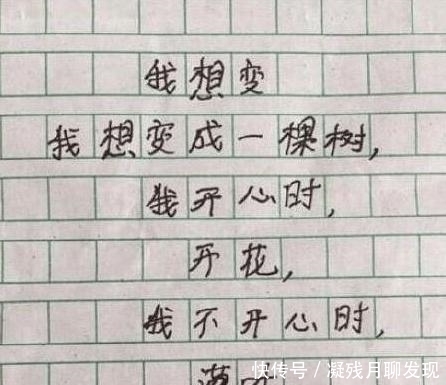 我想变
我想变成一棵树，
我开心时，
开花，
我不开心时，
快传号／凝残月聊发现